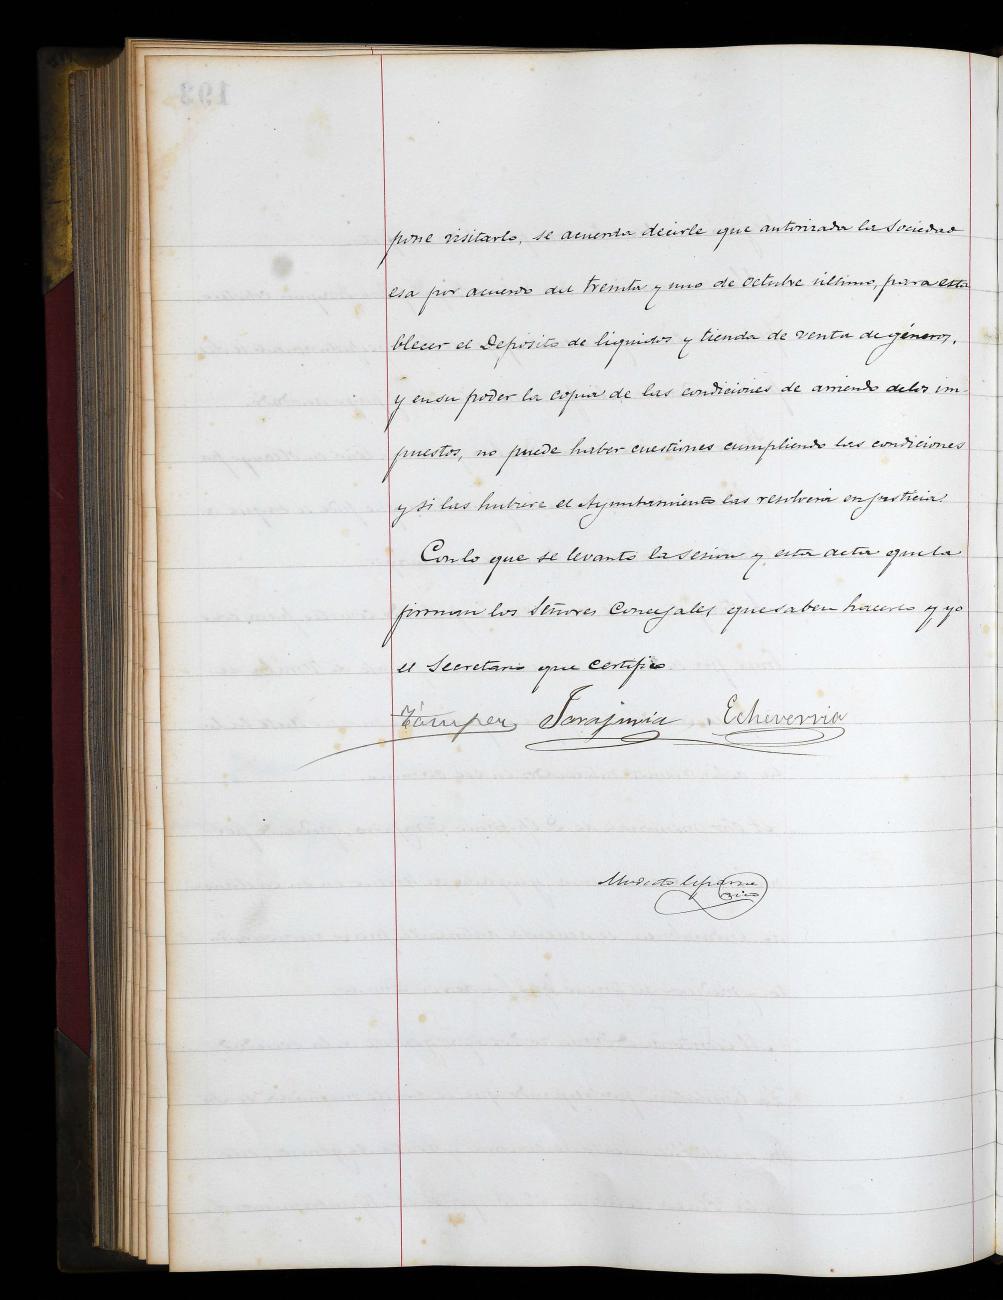 pone visitarlo, se acuerda decirle que autorizada la Sociedad
esa por acuerdo del treinta y uno de Octubre último, para esta
blecer el Depósito de líquidos y tienda de venta de géneros,
y en su poder la copia de las condiciones de arriendo de los im-
puestos, no puede haber cuestiones cumpliendo las condiciones
y si las hubiere el Ayuntamiento las resolverá en justicia.
Con lo que se levantó la sesión y esta acta que la
firman los Señores Concejales que saben hacerlo y yo
el Secretario que certifico
Echeverria
Modesto
193